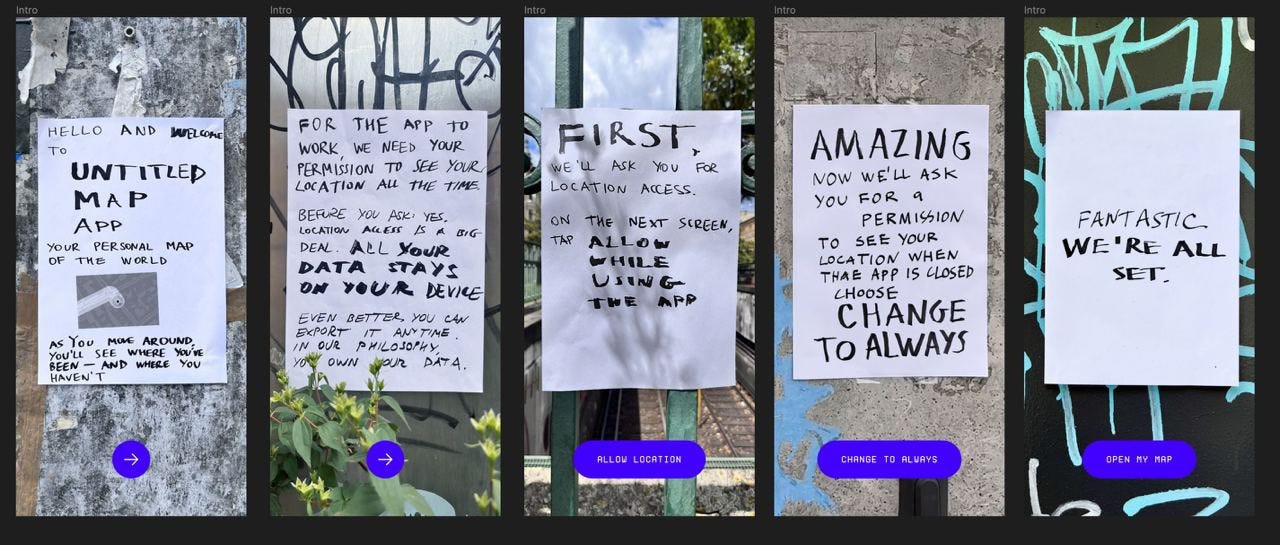 Intro
HELLO AND WELCOME
TO
UNTITLED
MAP
APP
YOUR PERSONAL MAP
OF THE WORLD
AS YOU MOVE AROUND,
YOU'LL SEE WHERE YOU'VE
BEEN — AND WHERE YOU
HAVEN'T
Intro
FOR THE APP TO
WORK, WE NEED YOUR
PERMISSION TO SEE YOUR
LOCATION ALL THE TIME.
BEFORE YOU ASK: YES.
LOCATION ACCESS IS A BIG
DEAL. ALL YOUR
DATA STAYS
ON YOUR DEVICE
EVEN BETTER, YOU CAN
EXPORT IT ANYTIME.
IN OUR PHILOSOPHY,
YOU OWN YOUR DATA.
Intro
FIRST,
WE'LL ASK YOU FOR
LOCATION ACCESS.
ON THE NEXT SCREEN,
TAP ALLOW
WHILE
USING
THE APP
ALLOW LOCATION
Intro
AMAZING
NOW WE'LL ASK
YOU FOR A
PERMISSION
TO SEE YOUR
LOCATION WHEN
THAE APP IS CLOSED
CHOOSE
CHANGE
TO ALWAYS
CHANGE TO ALWAYS
Intro
FANTASTIC
WE'RE ALL
SET.
OPEN MY MAP